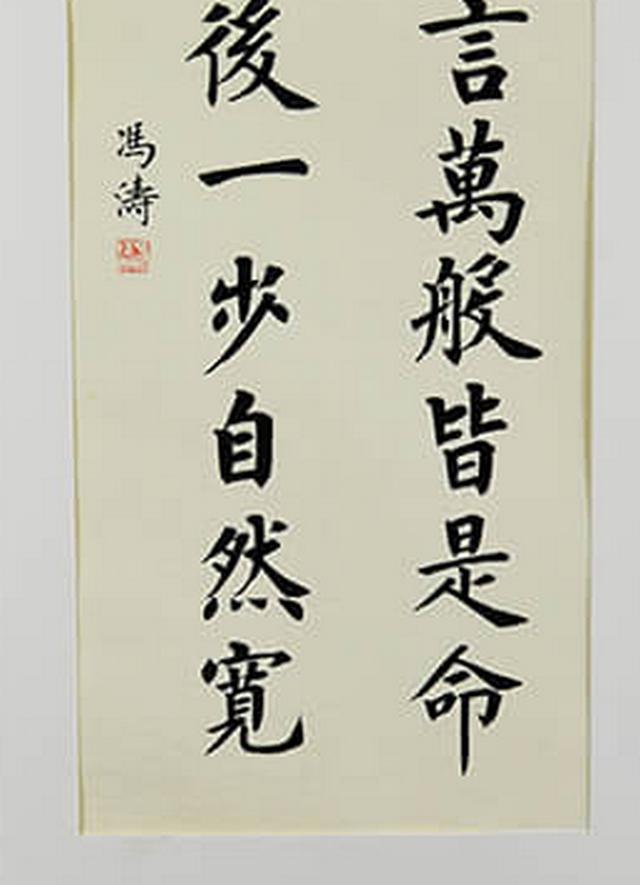 言萬般皆是命
後一步自然寬
馮濤